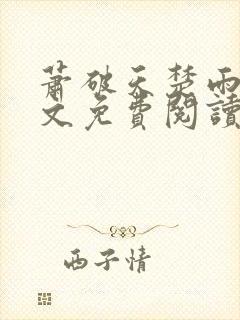 蕭破天楚雨
文免費閱讀
西子情